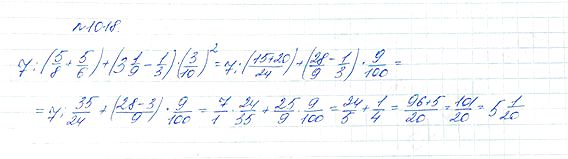 №1018.
7:(5/8+5/6)+(3 1/9-1/3)·(3/10)²=7:(15+20/24)+(28/9-1/3)·9/100=
=7:35/24+(28-3/9)·9/100=7/1·24/35+25/9·9/100=24/5+1/4=96+5/20=101/20=5 1/20